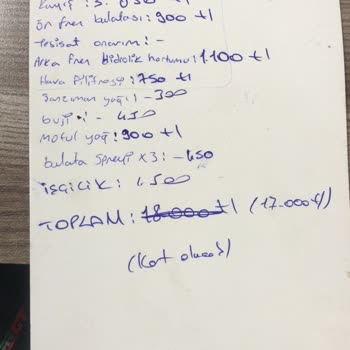 Kayış : 3.050 tl
Ön fren balatası : 900 tl
Tesisat onarım : -
Arka fren Hidrolik hortumu : 1.100 tl
Hava filitresi : 750 tl
Şanzuman yağı : - 300
buji : - 450
Motul yağ : 900 tl
balata spreyi x3 : - 450
işçilik : 1500
TOPLAM : 18.000 tl (17.000 tl)
(Kat olacak)